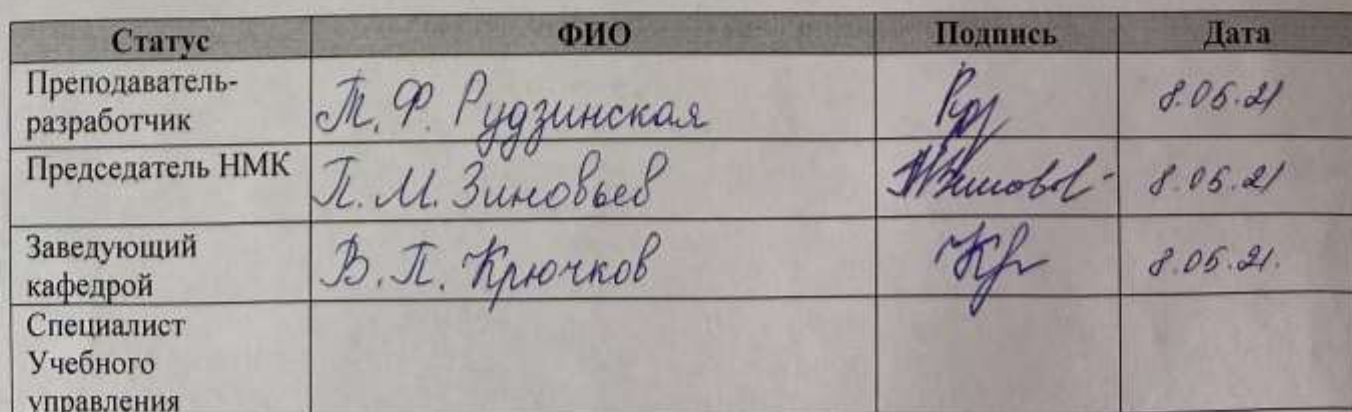 Статус ФИО Подпись Дата
Преподаватель-
разработчик Т. Ф. Рудзинская Руд 8.06.21
Председатель НМК П. М. Зиновьев 8.06.21
Заведующий
кафедрой В. П. Крючков Кр 8.06.21.
Специалист
Учебного
управления